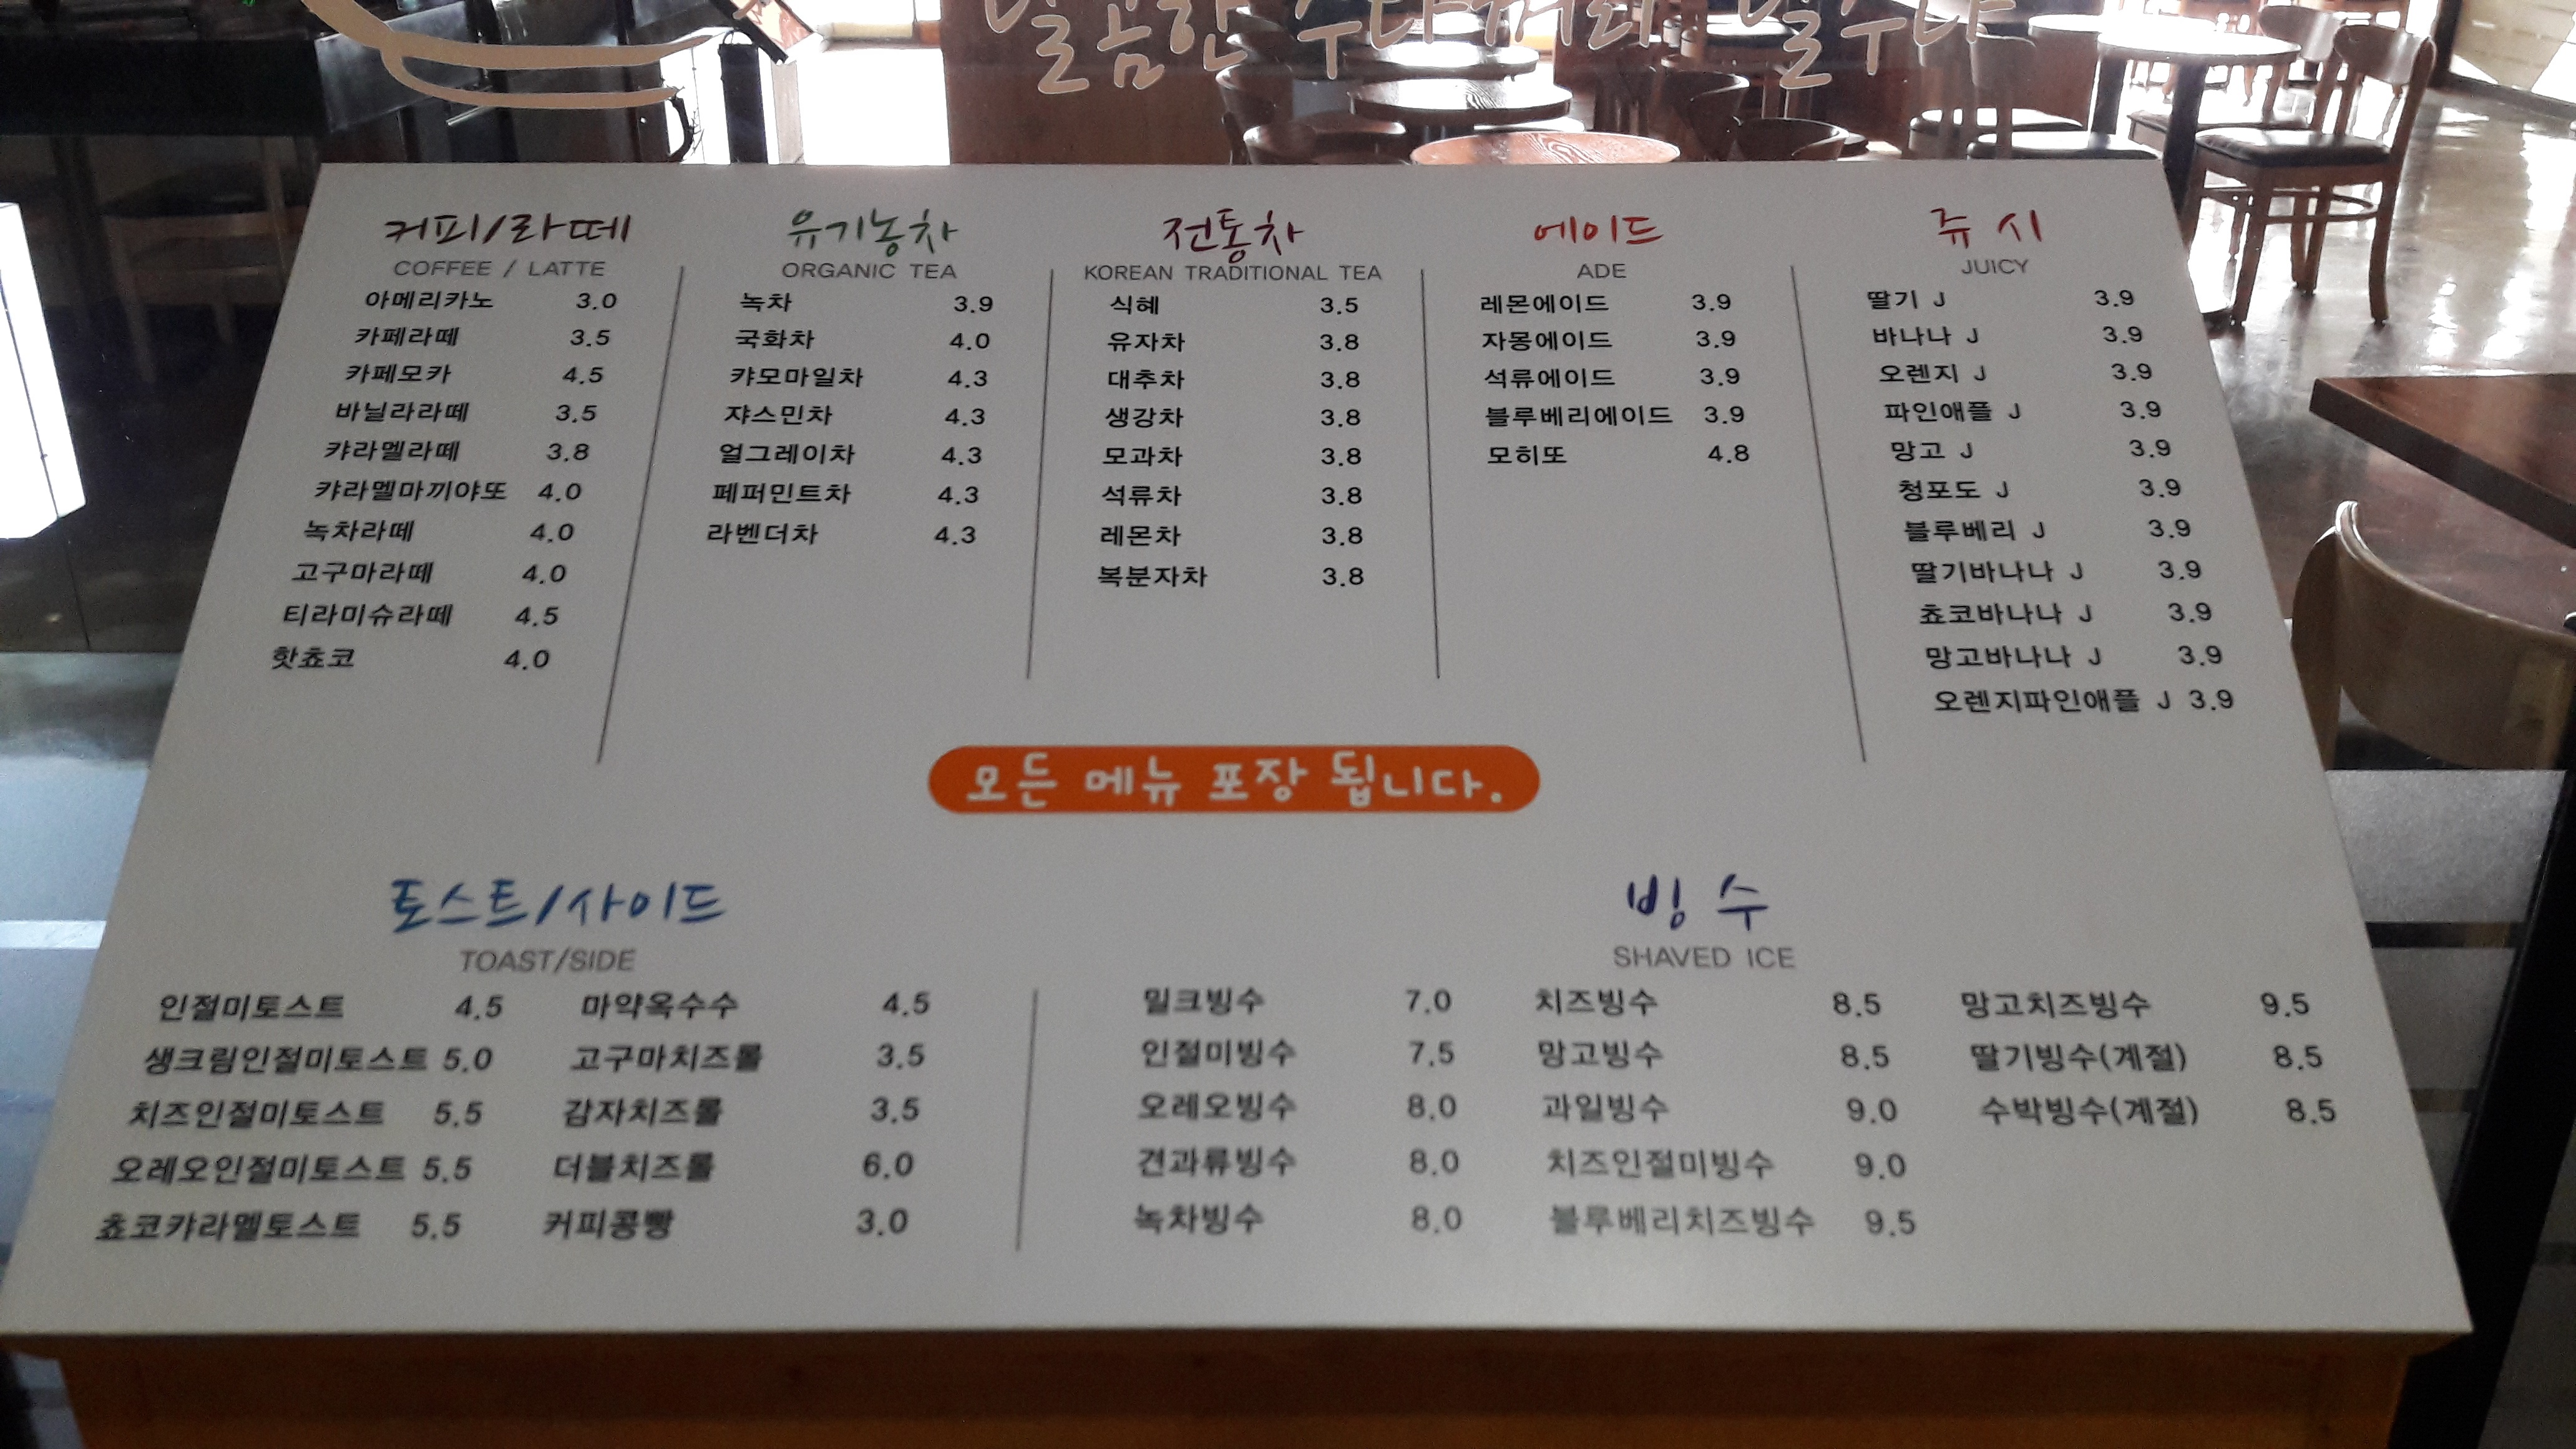 달콤한 수다꺼리 달수다
커피/라떼
COFFEE / LATTE
아메리카노 3.0
카페라떼 3.5
카페모카 4.5
바닐라라떼 3.5
캬라멜라떼 3.8
캬라멜마끼야또 4.0
녹차라떼 4.0
고구마라떼 4.0
티라미슈라떼 4.5
핫쵸코 4.0
유기농차
ORGANIC TEA
녹차 3.9
국화차 4.0
캬모마일차 4.3
쟈스민차 4.3
얼그레이차 4.3
페퍼민트차 4.3
라벤더차 4.3
전통차
KOREAN TRADITIONAL TEA
식혜 3.5
유자차 3.8
대추차 3.8
생강차 3.8
모과차 3.8
석류차 3.8
레몬차 3.8
복분자차 3.8
에이드
ADE
레몬에이드 3.9
자몽에이드 3.9
석류에이드 3.9
블루베리에이드 3.9
모히또 4.8
쥬 시
JUICY
딸기 J 3.9
바나나 J 3.9
오렌지 J 3.9
파인애플 J 3.9
망고 J 3.9
청포도 J 3.9
블루베리 J 3.9
딸기바나나 J 3.9
쵸코바나나 J 3.9
망고바나나 J 3.9
오렌지파인애플 J 3.9
모든 메뉴 포장 됩니다.
토스트/사이드
TOAST/SIDE
인절미토스트 4.5
생크림인절미토스트 5.0
치즈인절미토스트 5.5
오레오인절미토스트 5.5
쵸코캬라멜토스트 5.5
마약옥수수 4.5
고구마치즈롤 3.5
감자치즈롤 3.5
더블치즈롤 6.0
커피콩빵 3.0
빙 수
SHAVED ICE
밀크빙수 7.0
인절미빙수 7.5
오레오빙수 8.0
견과류빙수 8.0
녹차빙수 8.0
치즈빙수 8.5
망고빙수 8.5
과일빙수 9.0
치즈인절미빙수 9.0
블루베리치즈빙수 9.5
망고치즈빙수 9.5
딸기빙수(계절) 8.5
수박빙수(계절) 8.5